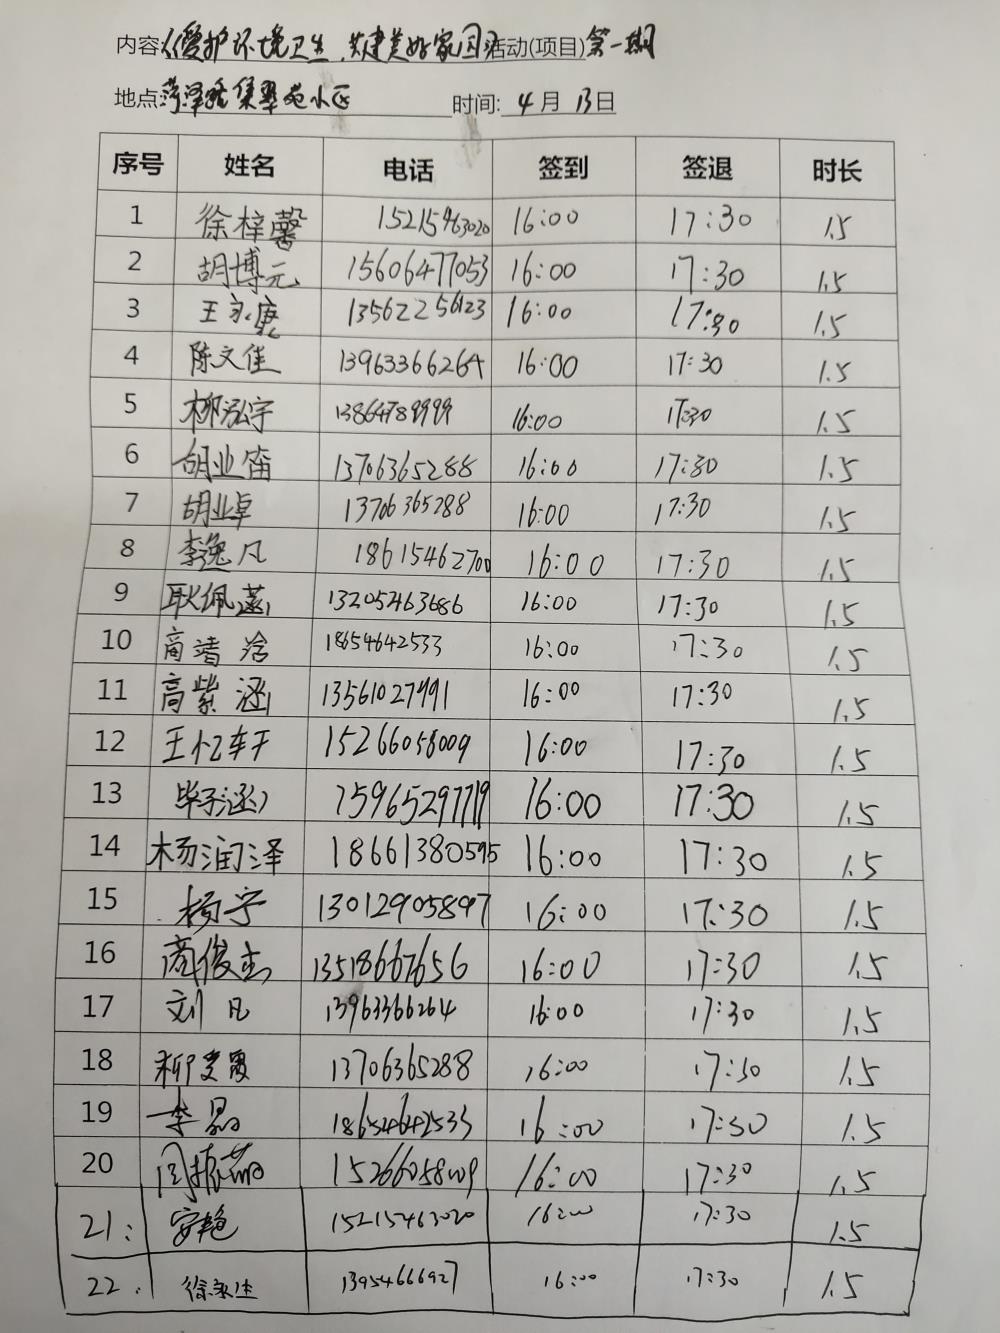 内容《爱护环境卫生,共建美好家园》活动(项目)第一期
地点:菏泽路集翠苑小区 时间: 4 月 13 日
序号 姓名 电话 签到 签退 时长
1 徐梓馨 15215463020 16:00 17:30 1.5
2 胡博元 15606477053 16:00 17:30 1.5
3 王永康 13562256123 16:00 17:30 1.5
4 陈文佳 13963366264 16:00 17:30 1.5
5 柳泓宇 13864789999 16:00 17:30 1.5
6 胡业笛 13706365288 16:00 17:30 1.5
7 胡业卓 13706365288 16:00 17:30 1.5
8 李逸凡 18615462700 16:00 17:30 1.5
9 耿佩涵 13205463686 16:00 17:30 1.5
10 商靖涵 18654642533 16:00 17:30 1.5
11 高紫涵 13561027991 16:00 17:30 1.5
12 王忆轩 15266058009 16:00 17:30 1.5
13 毕子涵 15965297719 16:00 17:30 1.5
14 杨润泽 18661380595 16:00 17:30 1.5
15 杨宁 13012905897 16:00 17:30 1.5
16 商俊杰 13518667656 16:00 17:30 1.5
17 刘凡 13963366264 16:00 17:30 1.5
18 柳 13706365288 16:00 17:30 1.5
19 李晶 18654642533 16:00 17:30 1.5
20 闫振 15266058009 16:00 17:30 1.5
21: 安艳 15215463020 16:00 17:30 1.5
22. 徐永 13954666927 16:00 17:30 1.5